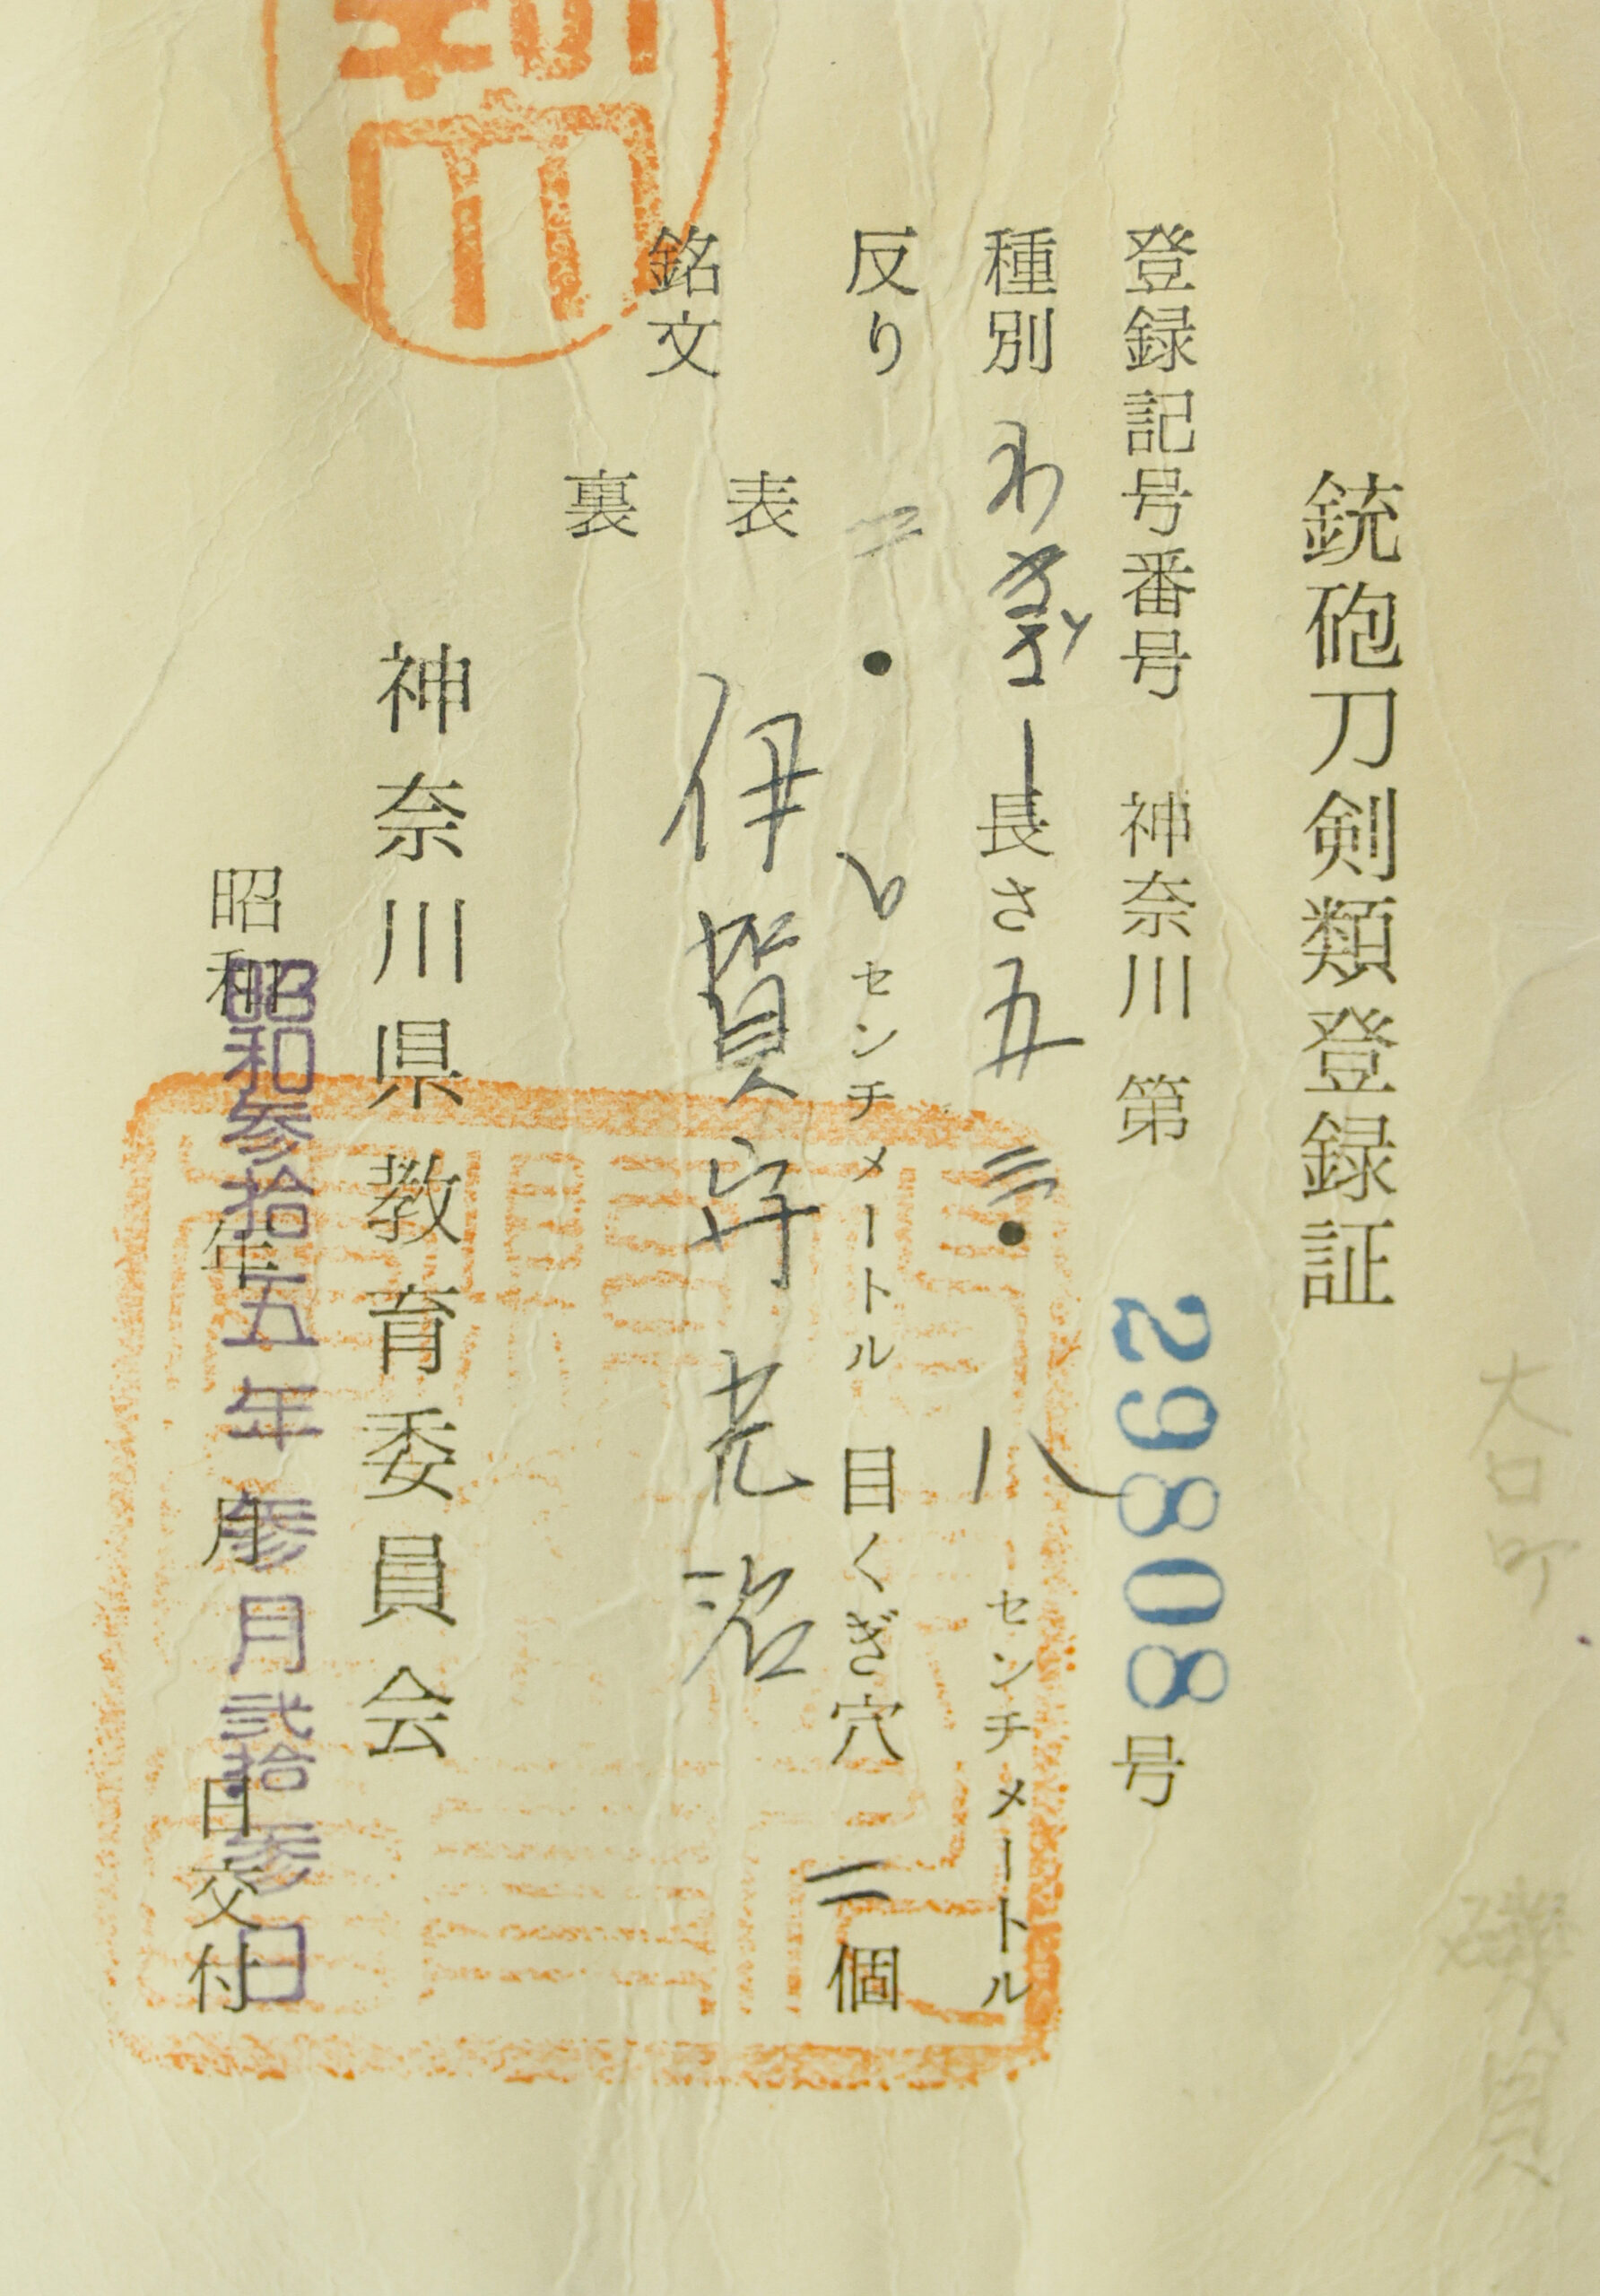 大口町 磯貝
銃砲刀剣類登録証
登録記号番号 神奈川 第 29808 号
種別 わきざし 長さ 五三・八 センチメートル
反り ・ センチメートル 目くぎ穴 二 個
銘文
表 伊賀守
裏
神奈川県教育委員会
昭和参拾五年参月弐拾参日
昭和 年 月 日交付